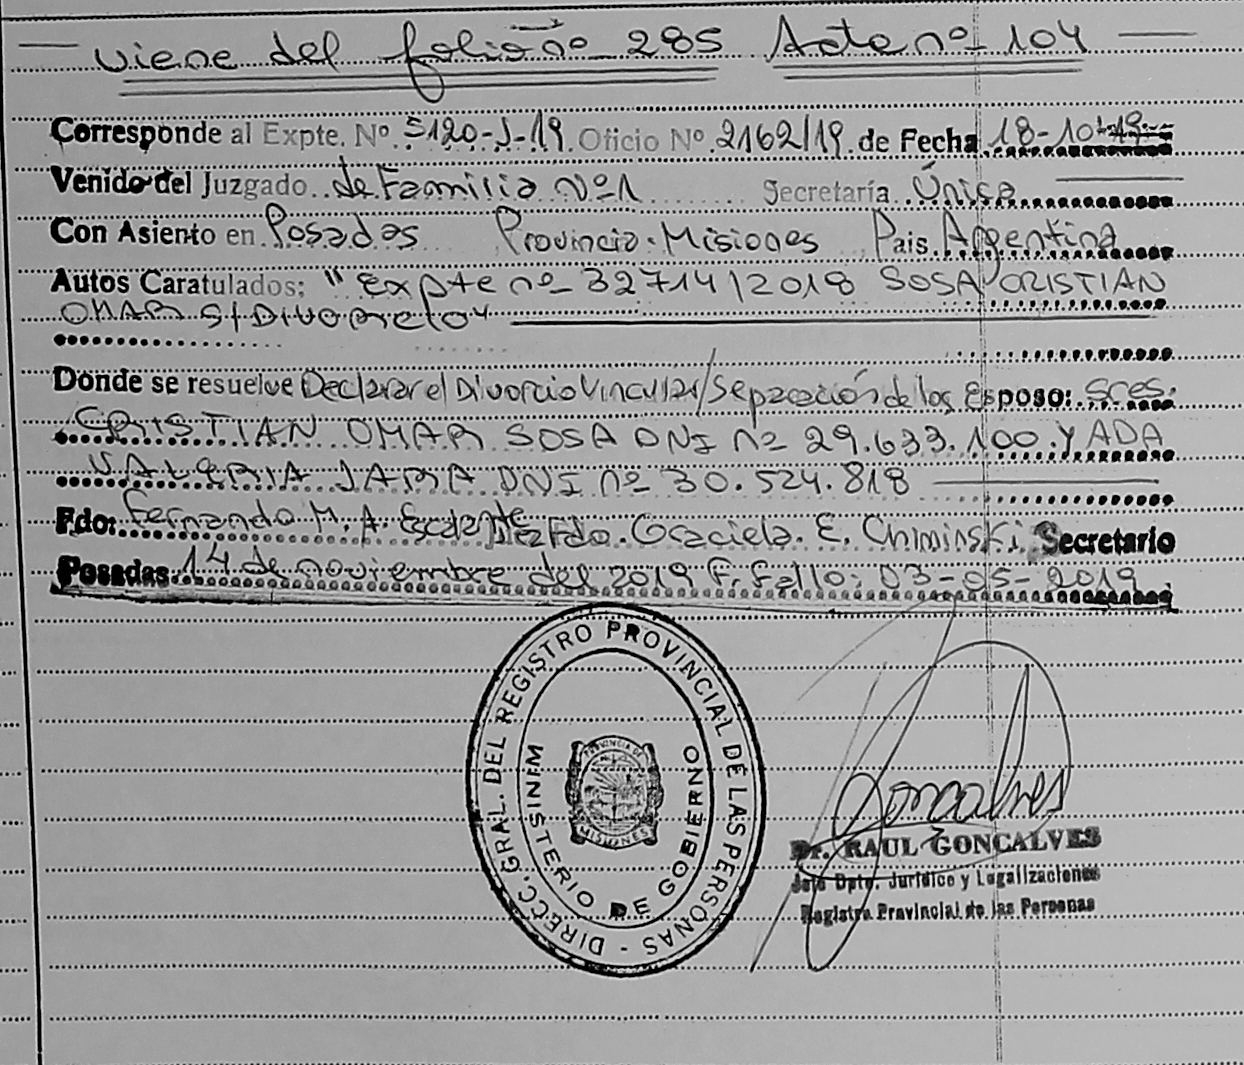 viene del folio nº 285 Acta nº 104
Corresponde al Expte. Nº 5120-J-19 Oficio Nº 2162/19 de Fecha 18-10-19
Venido del Juzgado de Familia Nº 1 Secretaría Única
Con Asiento en Posadas Provincia Misiones Pais Argentina
Autos Caratulados: "Expte nº 32714/2018 SOSA CRISTIAN
OMAR S/
Donde se resuelve Declarar el Divorcio Vincular/Separación de los Esposo: sres.
CRISTIAN OMAR SOSA DNI nº 29.633.100. Y ADA
VALERIA JARA DNI nº 30.524.818
Fdo: Fernando M. A. Escalante Fdo. Graciela. E. Chiminski Secretario
Posadas 14 de noviembre del 2019 F. Fallo: 03-05-2019.
DIRECC. GRAL. DEL REGISTRO PROVINCIAL DE LAS PERSONAS -
MINISTERIO DE GOBIERNO
PROVINCIA DE
MISIONES
Goncalves
Dr. RAUL GONCALVES
Jefe Dpto. Jurídico y Legalizaciones
Registro Provincial de las Personas